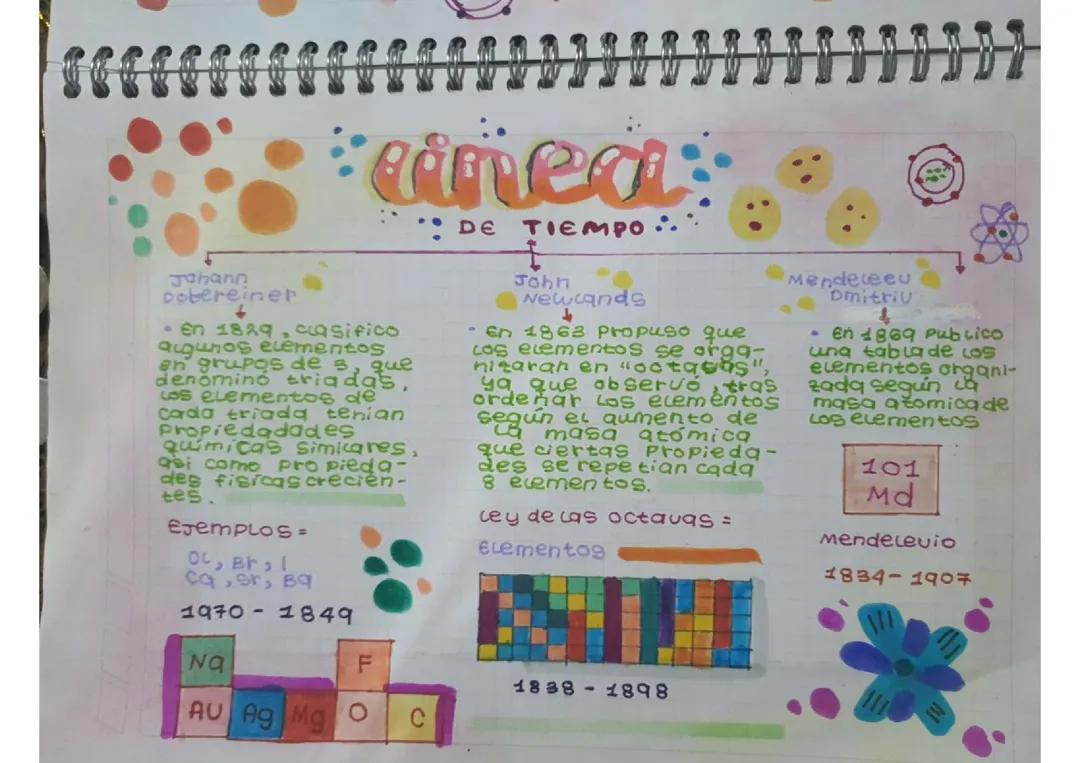 Linea
DE TIEMPO
Johann
Dobereiner
• En 1829, clasifico
algunos elementos
en grupos de 3, que
denominó triadas.
Los elementos de
cada triada tenian
Propiedadades
químicas similares,
asi como propieda-
des fisicas crecien-
tes.
EJEMPLOS =
CL, Br, I
Ca, Sr, Ba
1970 - 1849
Na
F
AU Ag Mg O C
John
Newlands
• En 1863 Propuso que
los elementos se orga-
nizaran en "octavas",
ya que observó, tras
ordenar los elementos
según el aumento de
la masa atómica
que ciertas propieda-
des se repetian cada
8 elementos.
Ley de las octavas =
Elementos
1838 - 1898
Mendeleev
Dmitriv
• En 1869 Publico
una tabla de los
elementos organi-
zada según la
masa atomica de
los elementos
101
Md
Mendelevio
1834 - 1907